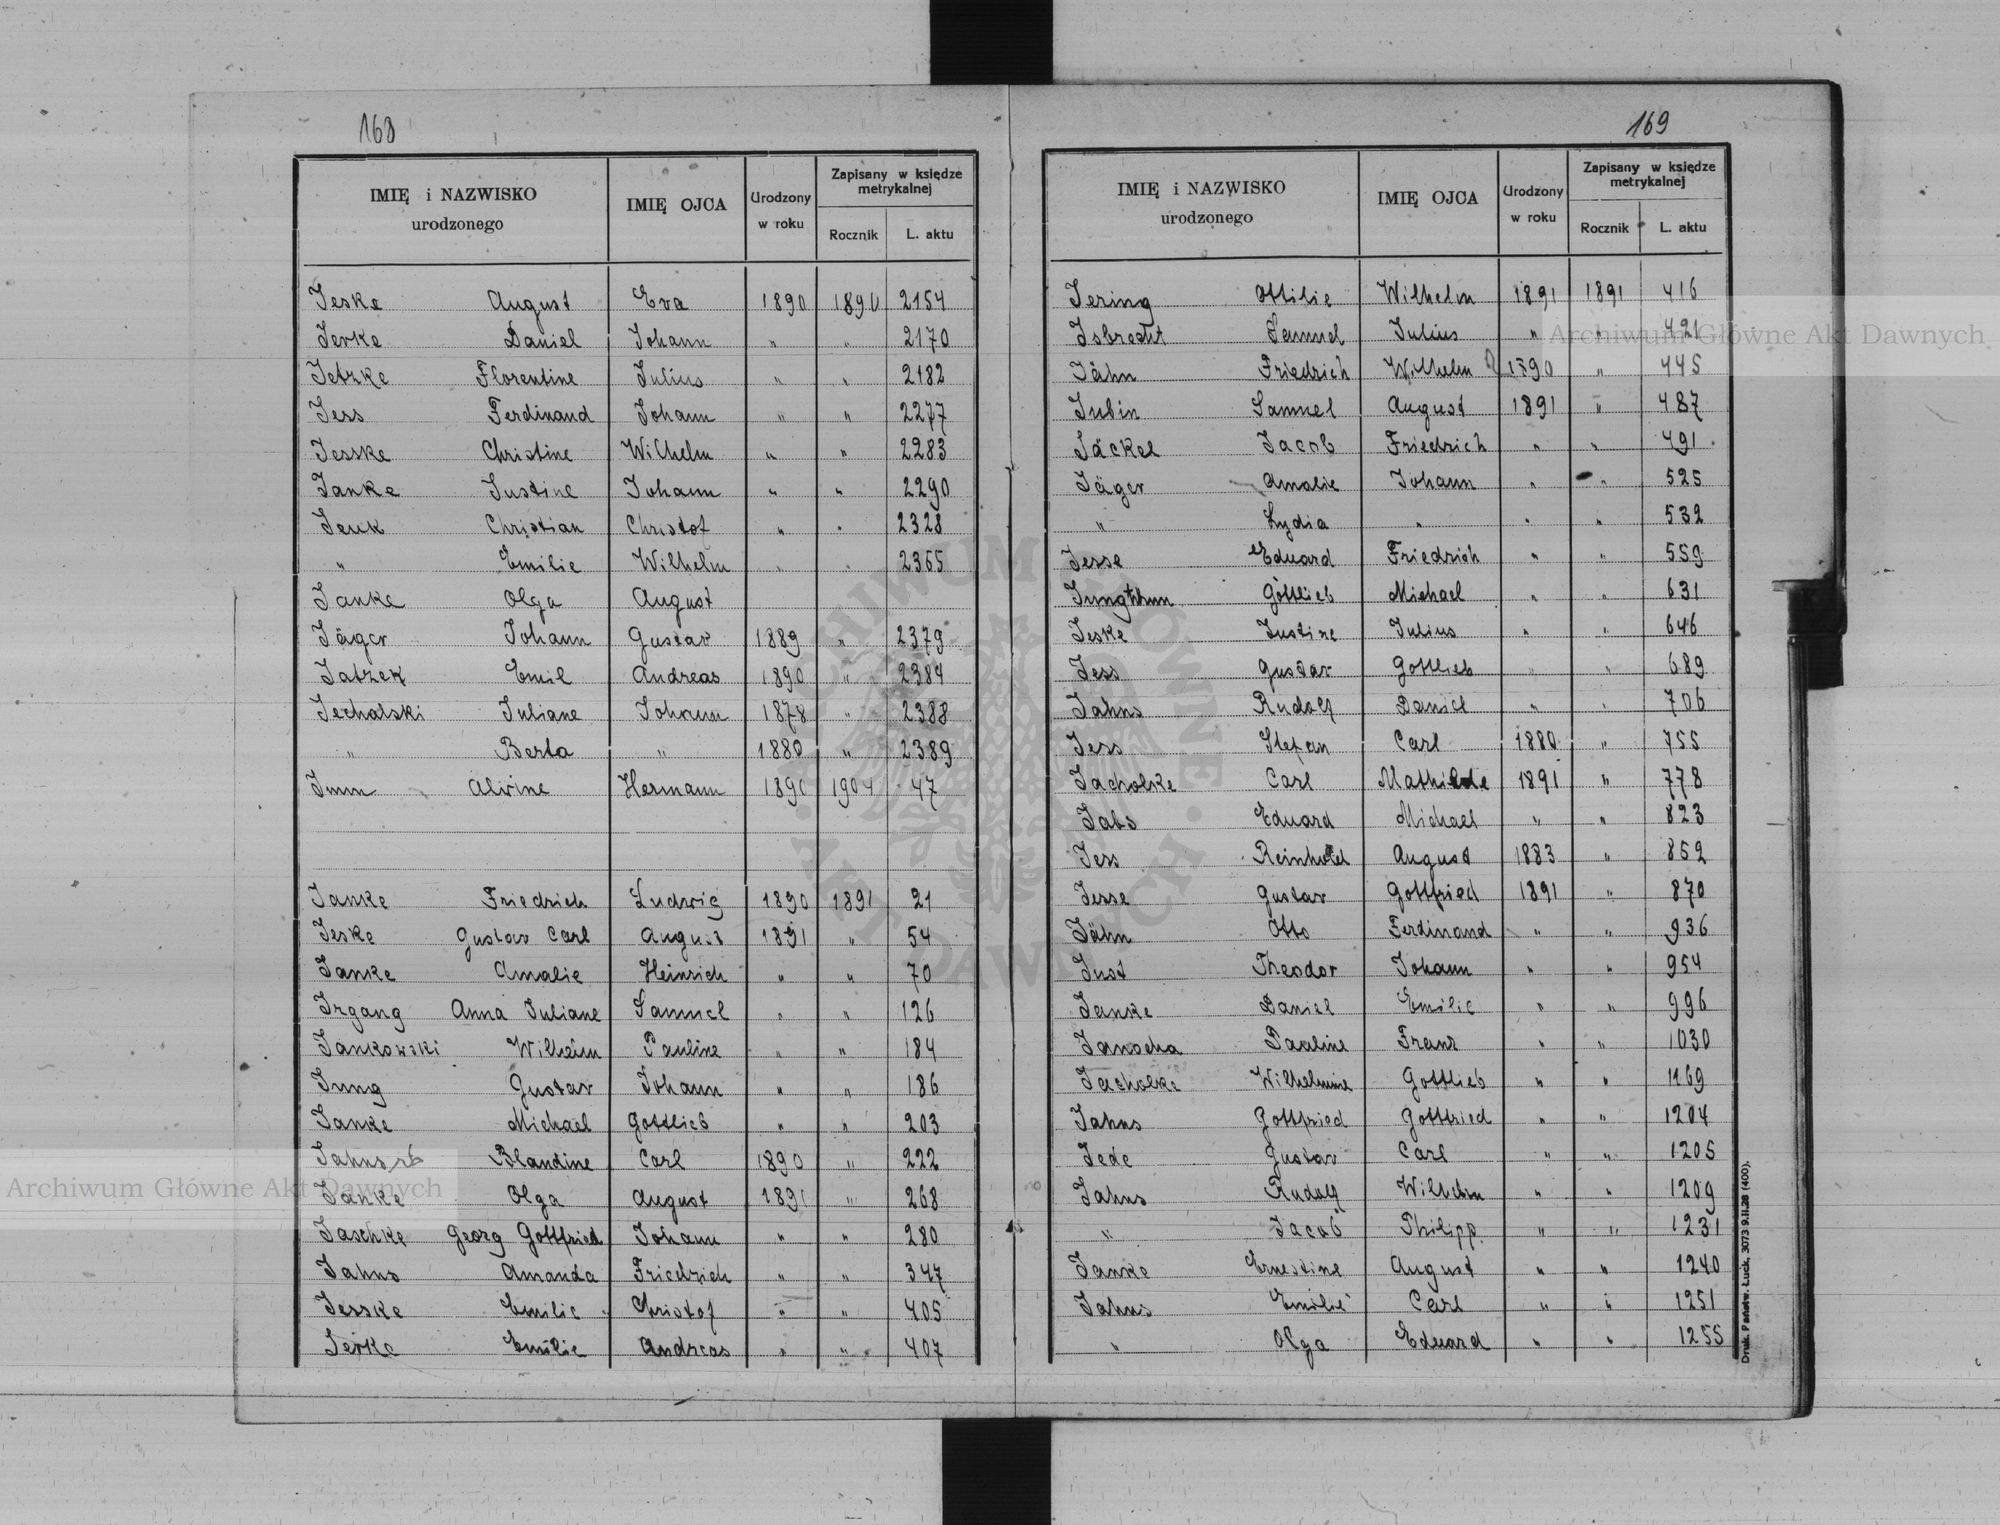 168
IMIĘ i NAZWISKO urodzonego IMIĘ OJCA Urodzony w roku Zapisany w księdze metrykalnej Rocznik L. aktu
Jeske August Eva 1890 1890 2154
Jerke Daniel Johann " " 2170
Jetzke Florentine Julius " " 2182
Jess Ferdinand Johann " " 2277
Jesske Christine Wilhelm " " 2283
Janke Justine Johann " " 2290
Jeuk Christian Christof " " 2328
" Emilie Wilhelm " " 2365
Janke Olga August
Jäger Johann Gustav 1889 " 2379
Jatzek Emil Andreas 1890 " 2384
Jechalski Juliane Johann 1878 " 2388
" Berta " 1880 " 2389
Imm Alwine Hermann 1890 1904 47
Janke Friedrich Ludwig 1890 1891 21
Jeske Gustav Carl August 1891 " 54
Janke Amalie Heinrich " " 70
Irgang Anna Juliane Samuel " " 126
Jankowski Wilhelm Pauline " " 184
Jung Gustav Johann " " 186
Janke Michael Gottlieb " " 203
Jahns Blandine Carl 1890 " 222
Janke Olga August 1891 " 268
Jaschke Georg Gottfried Johann " " 280
Jahns Amanda Friedrich " " 347
Jesske Emilie Christof " " 405
Jerke Emilie Andreas " " 407
169
IMIĘ i NAZWISKO urodzonego IMIĘ OJCA Urodzony w roku Zapisany w księdze metrykalnej Rocznik L. aktu
Jering Ottilie Wilhelm 1891 1891 416
Isbrecht Samuel Julius " " 421
Jähn Friedrich Wilhelm 1890 " 445
Jubin Samuel August 1891 " 487
Jäckel Jacob Friedrich " " 491
Jäger Amalie Johann " " 525
" Lydia " " " 532
Jesse Eduard Friedrich " " 559
Jungthun Gottlieb Michael " " 631
Jeske Justine Julius " " 646
Jess Gustav Gottlieb " " 689
Jahns Rudolf Daniel " " 706
Jess Stefan Carl 1880 " 755
Jacholke Carl Mathilde 1891 " 778
Jabs Eduard Michael " " 823
Jess Reinhold August 1883 " 852
Jesse Gustav Gottfried 1891 " 870
Jähn Otto Ferdinand " " 936
Just Theodor Johann " " 954
Janke Daniel Emilie " " 996
Janocha Pauline Franz " " 1030
Jacholke Wilhelmine Gottlieb " " 1169
Jahns Gottfried Gottfried " " 1204
Jede Gustav Carl " " 1205
Jahns Rudolf Wilhelm " " 1209
" Jacob Philipp " " 1231
Janke Ernestine August " " 1240
Jahns Emilie Carl " " 1251
" Olga Eduard " " 1255
Druk. Państw. Łuck, 3073 9.II.28 (400).
Archiwum Główne Akt Dawnych
Archiwum Główne Akt Dawnych
ARCHIWUM GŁÓWNE · AKT DAWNYCH ·